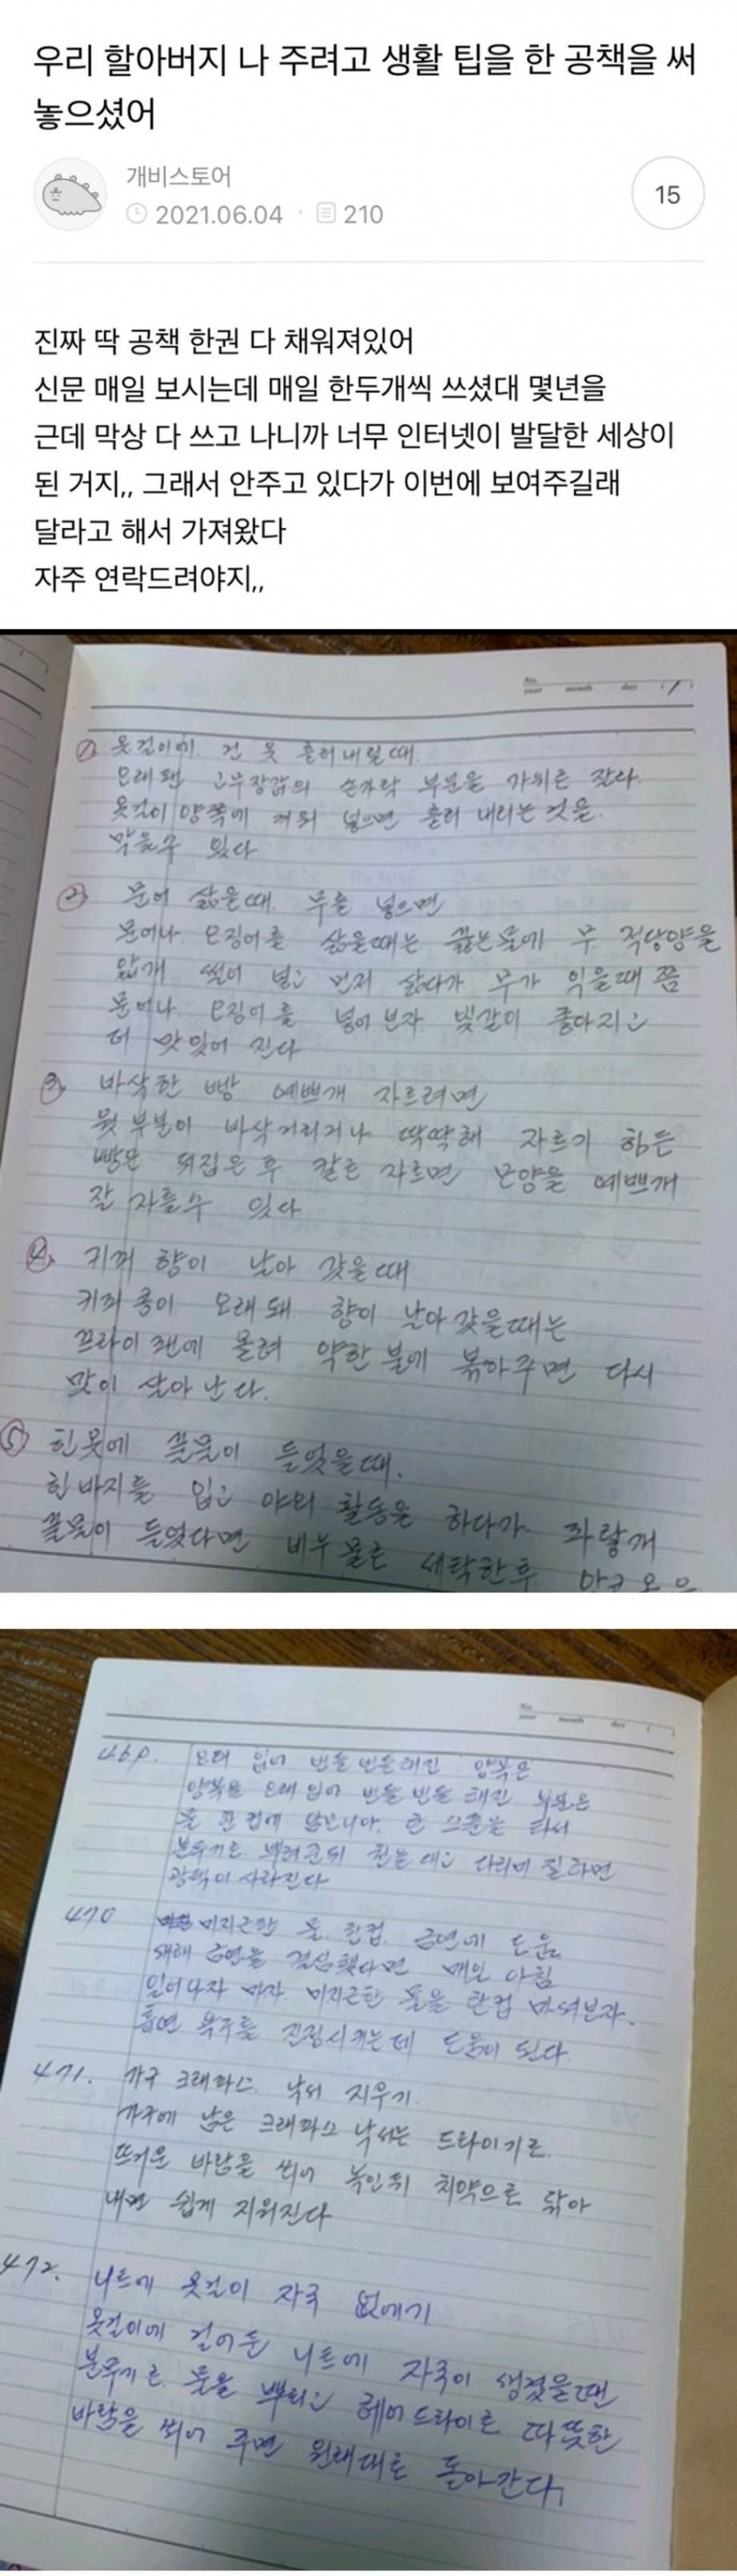 우리 할아버지 나 주려고 생활 팁을 한 공책을 써
놓으셨어
개비스토어
2021.06.04 · 210
15
진짜 딱 공책 한권 다 채워져있어
신문 매일 보시는데 매일 한두개씩 쓰셨대 몇년을
근데 막상 다 쓰고 나니까 너무 인터넷이 발달한 세상이
된 거지,, 그래서 안주고 있다가 이번에 보여주길래
달라고 해서 가져왔다
자주 연락드려야지,,
No.
year month day ( 1 )
① 옷걸이에 건 옷 흘러내릴때.
오래된 고무장갑의 손가락 부분을 가위로 잘라
옷걸이 양쪽에 끼워 넣으면 흘러 내리는 것을
막을수 있다
② 문어 삶을때 무를 넣으면
문어나 오징어를 삶을때는 끓는물에 무 적당양을
얇개 썰어 넣고 먼저 삶다가 무가 익을때 쯤
문어나 오징어를 넣어보자 빛갈이 좋아지고
더 맛있어 진다
③ 바삭한 빵 예쁘개 자르려면
윗부분이 바삭거리거나 딱딱해 자르기 힘든
빵은 뒤집은 후 칼로 자르면 모양을 예쁘개
잘 자를수 있다
④ 커피 향이 날아 갔을때
커피콩이 오래돼 향이 날아갔을때는
프라이팬에 올려 약한불에 볶아주면 다시
맛이 살아난다.
⑤ 흰옷에 풀물이 들었을때.
흰바지를 입고 야외 활동을 하다가 파랗개
풀물이 들었다면 비누물로 세탁한후
No.
year month day ( )
469. 오래 입어 반들반들해진 양복은
양복을 오래입어 반들반들 해진 부분은
물 한컵에 암모니아 한 스푼을 타서
분무기로 뿌려준뒤 천을대고 다리미 질하면
광택이 사라진다
470 미지근한 물 한컵 금연에 도움
새해 금연을 결심했다면 매일 아침
일어나자 마자 미지근한 물을 한컵 마셔보자.
흡연 욕구를 진정시키는데 도움이 된다
471. 가구 크레파스 낙서 지우기
가구에 남은 크레파스 낙서는 드라이기로
뜨거운 바람을 쐬어 녹인뒤 치약으로 닦아
내면 쉽게 지워진다
472. 니트에 옷걸이 자국 없에기
옷걸이에 걸어둔 니트에 자국이 생겼을땐
분무기로 물을 뿌리고 헤어드라이로 따뜻한
바람을 쐬어 주면 원래대로 돌아간다,